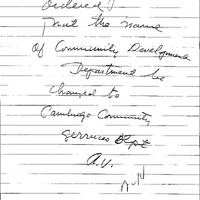 ordered
that the name
of Community Development
Department be
changed to
Cambridge Community
Services Dept
A.V.